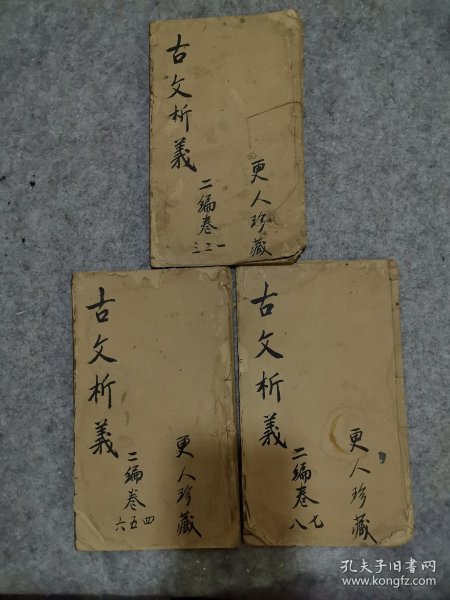 古文析義
二編卷
一二三
更人珍藏
古文析義
二編卷
四五六
更人珍藏
古文析義
二編卷
七八
更人珍藏
孔夫子旧书网
www.kongfz.com